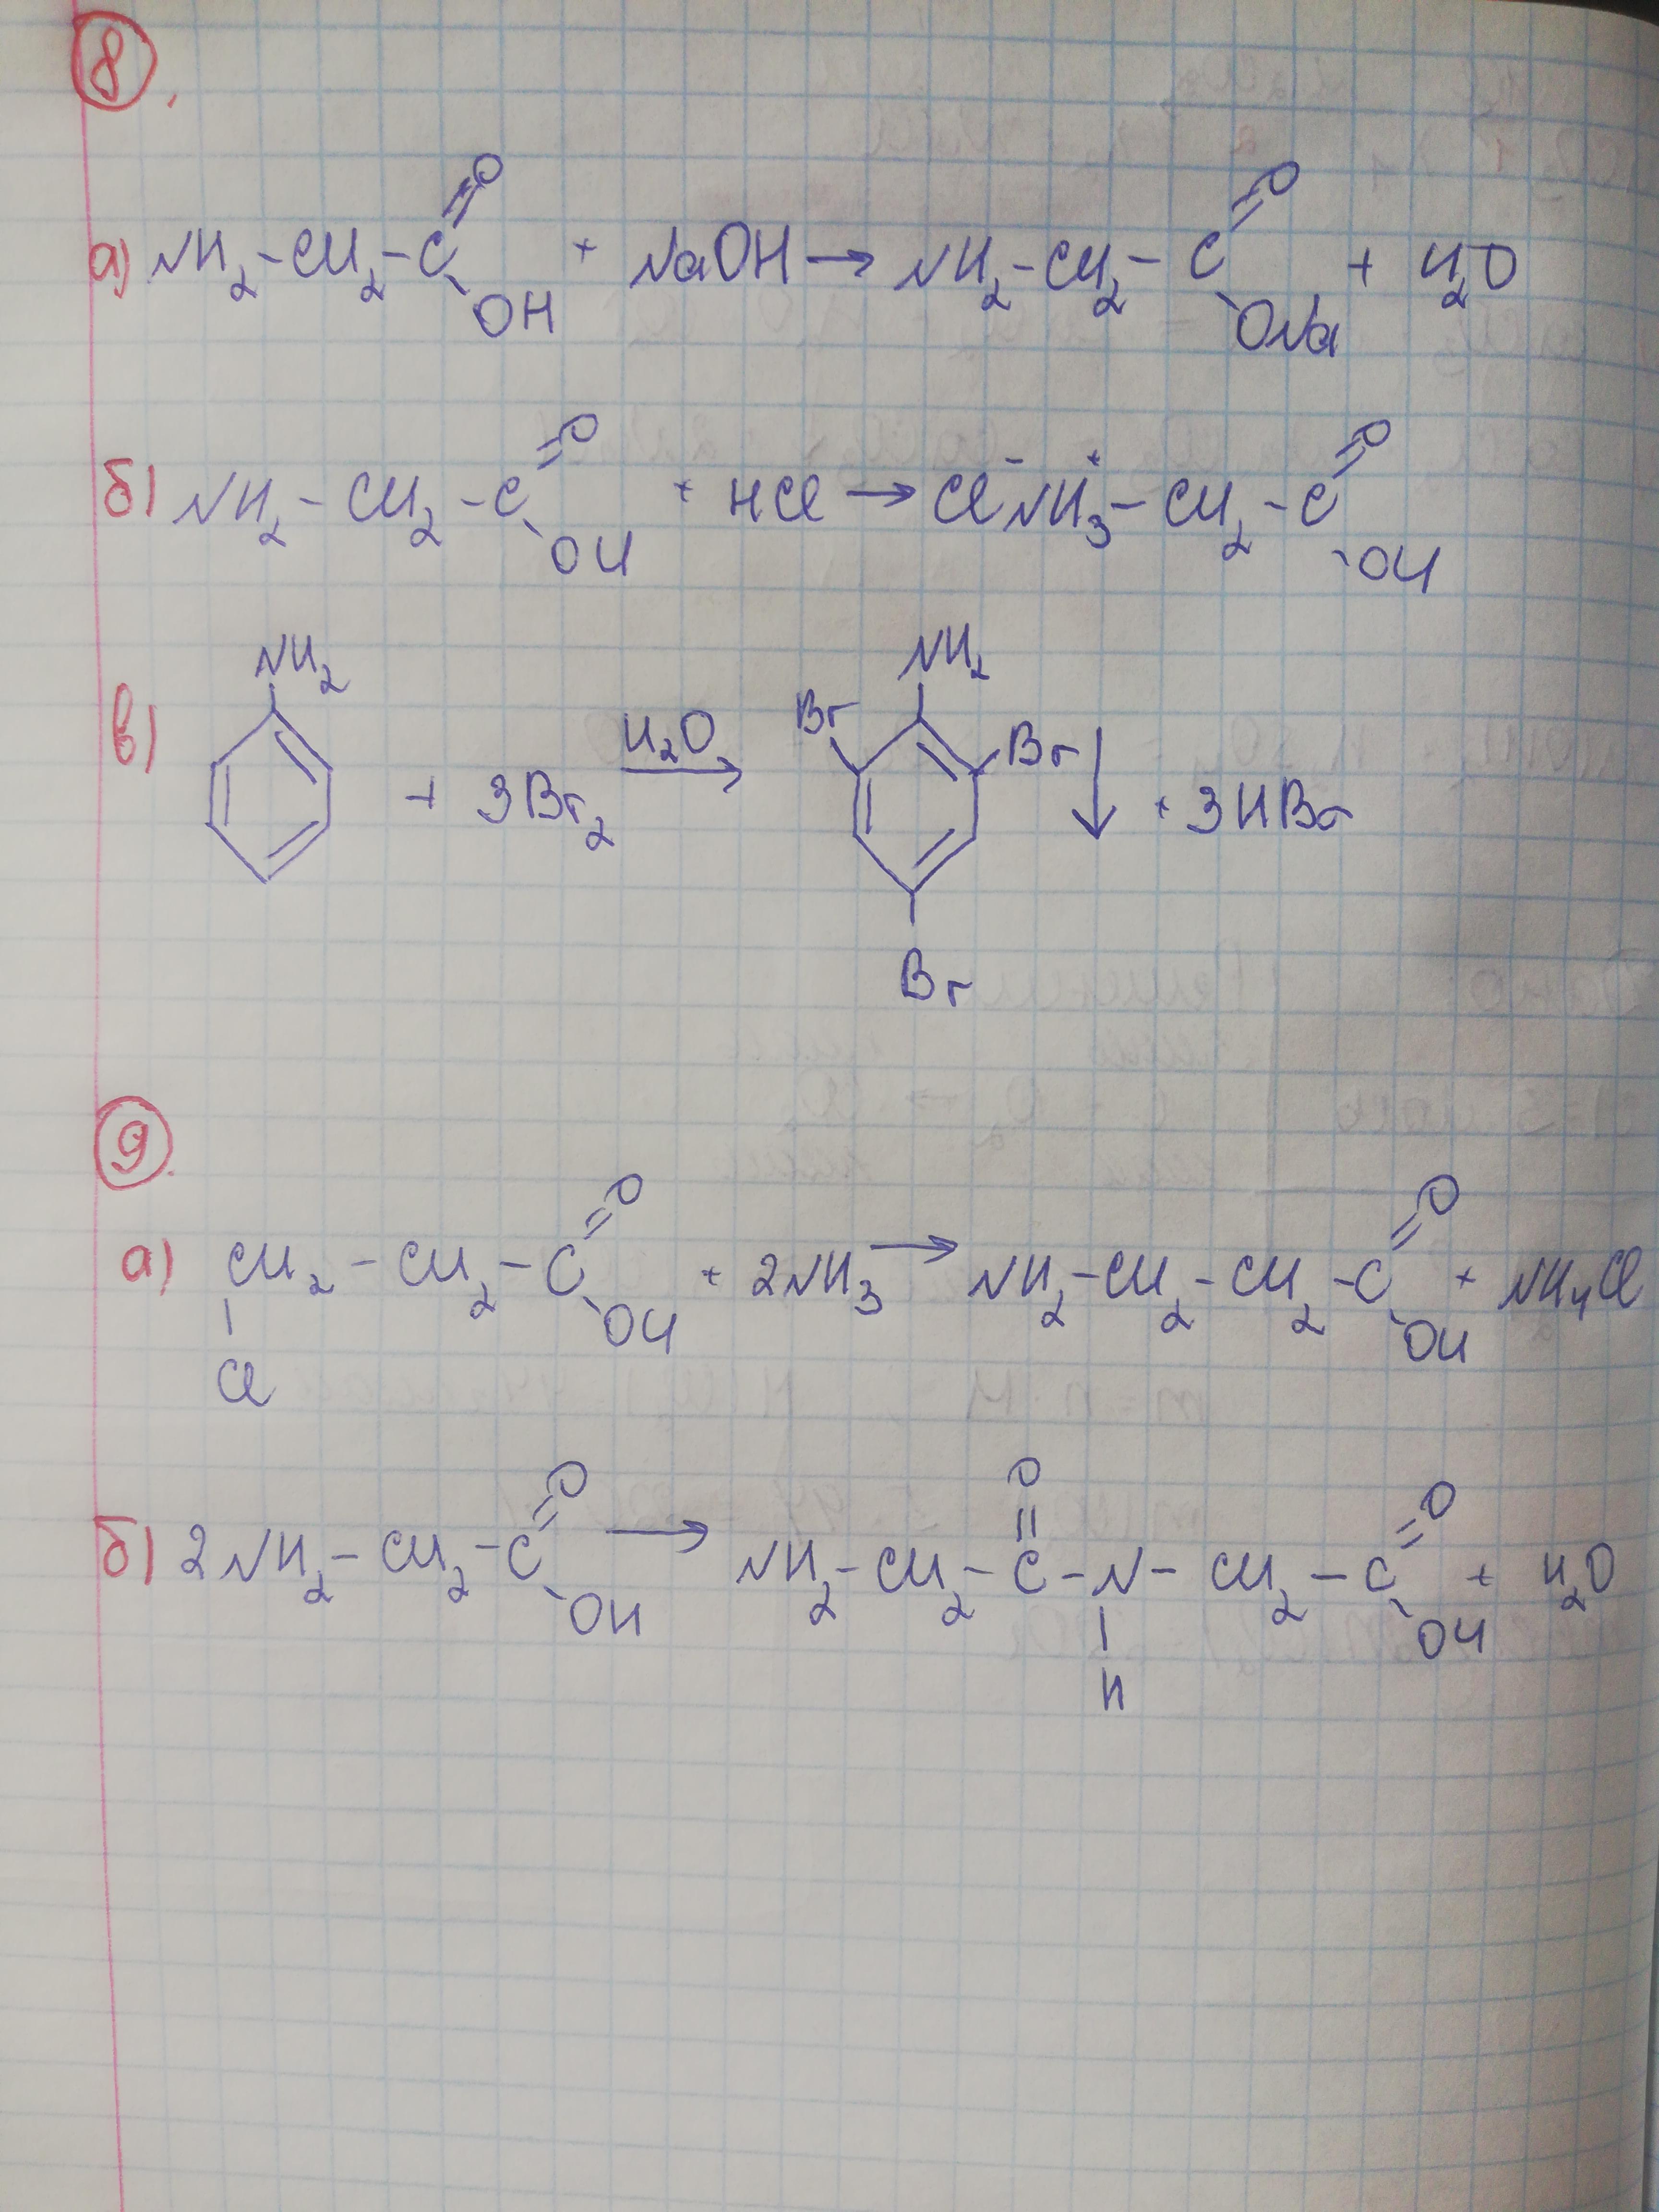 8.
а) NH2-CH2-C=O OH + NaOH → NH2-CH2-C=O ONa + H2O
б) NH2-CH2-C=O OH + HCl → Cl⁻NH3⁺-CH2-C=O OH
в) NH2 + 3Br2 H2O → NH2 Br Br Br ↓ + 3HBr
9.
а) CH2-CH2-C=O OH Cl + 2NH3 → NH2-CH2-CH2-C=O OH + NH4Cl
б) 2NH2-CH2-C=O OH → NH2-CH2-C=O-N-H-CH2-C=O OH + H2O